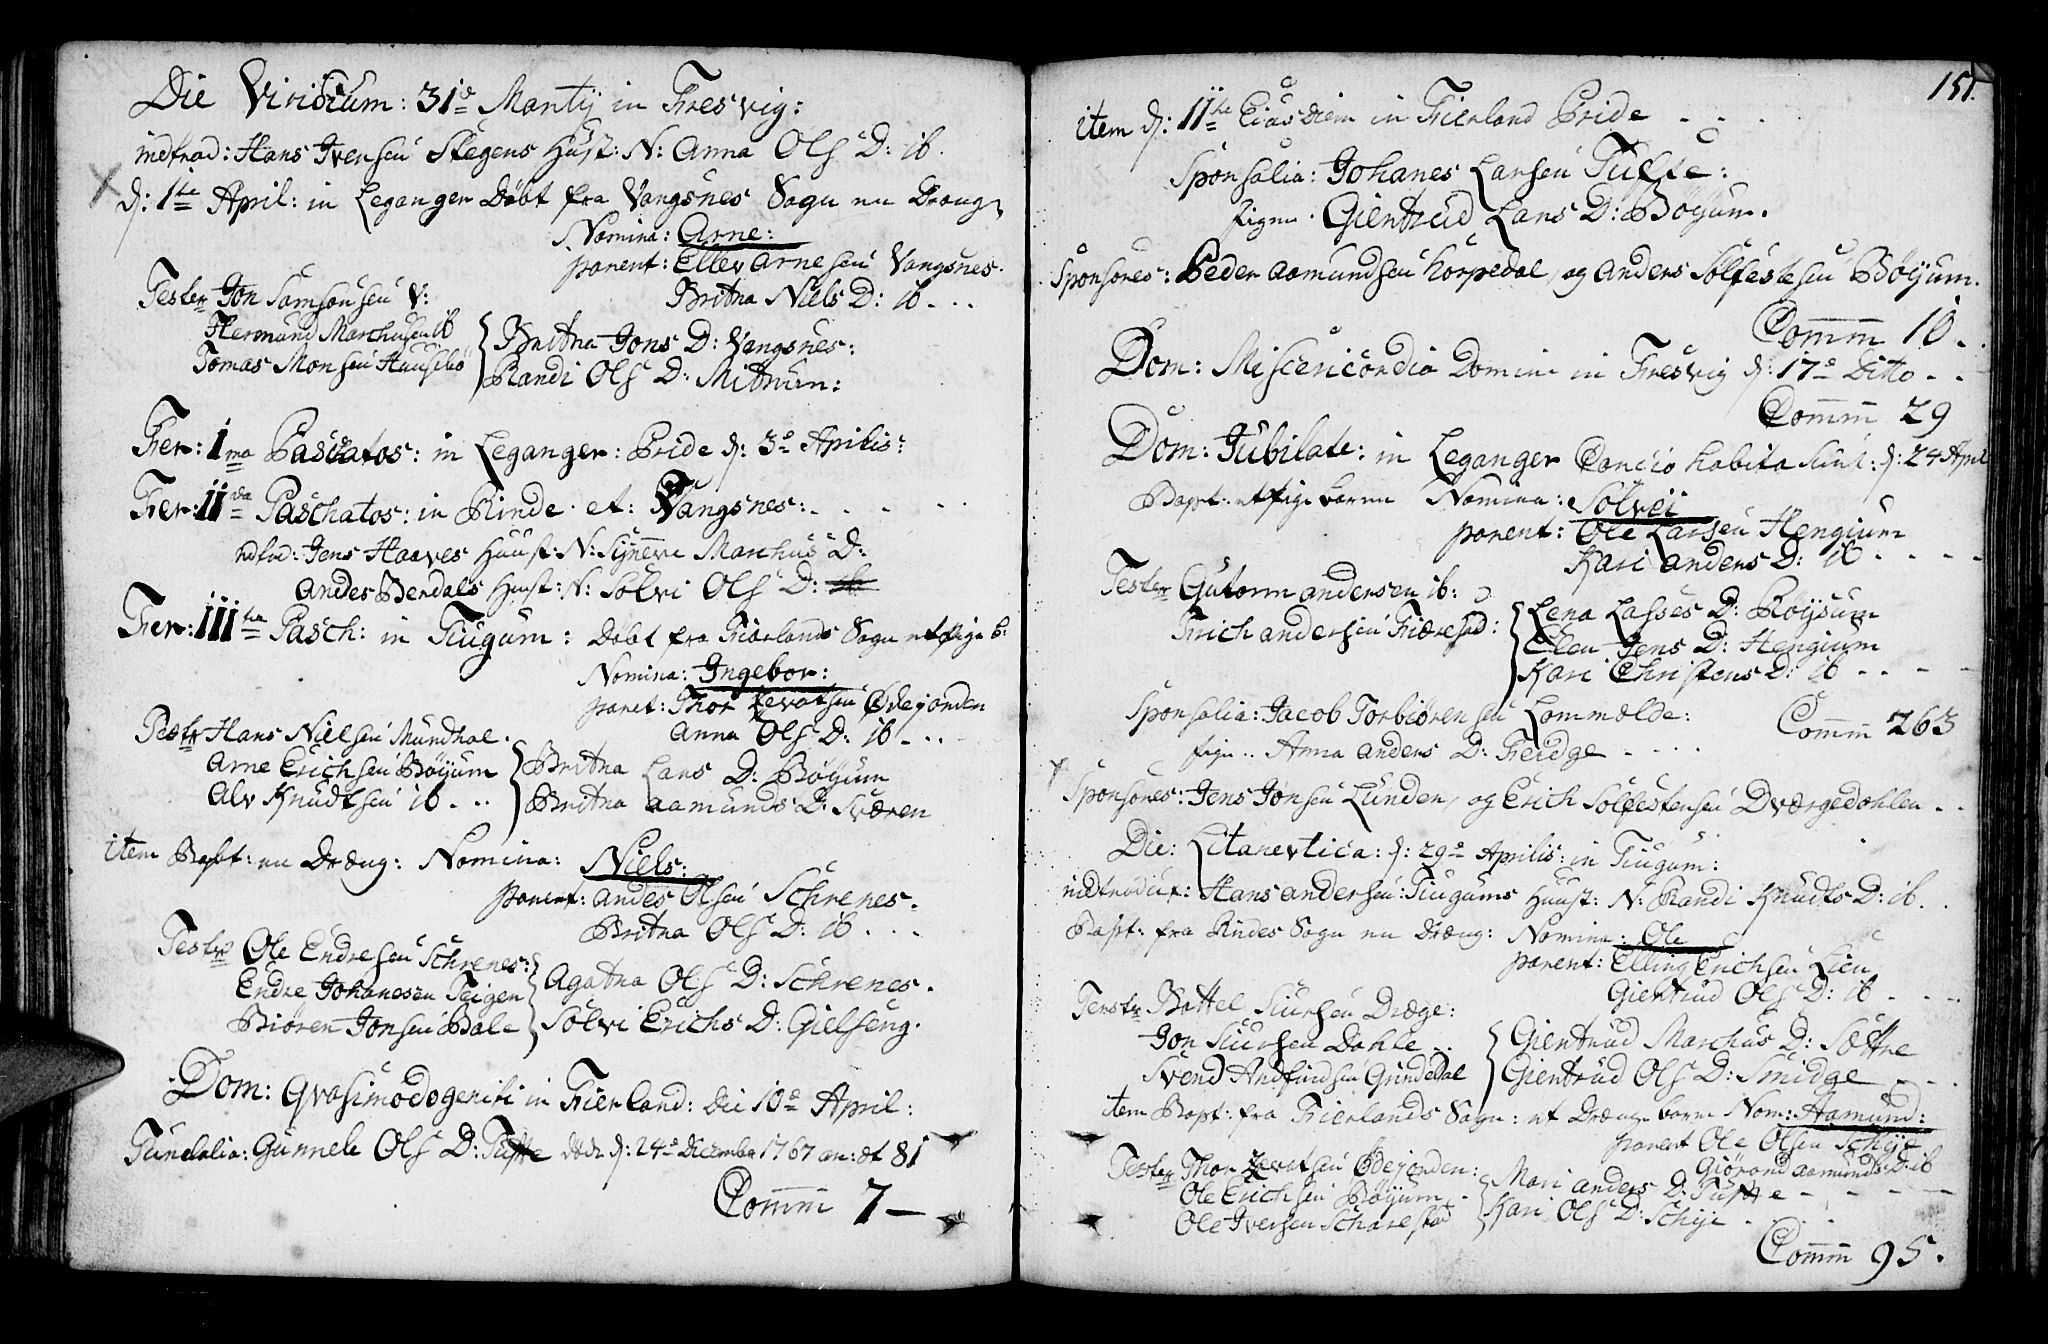 Die Viridium: 31te Martij in Fresvig:
indtrad: Hans Ivensen Stegens Hust: N: Anna Ols D: ib.
d: 1te April: in Leganger Døbt fra Vangsnes Sogn en Dreng
Nomina: Arne:
parent: Ellev Arnesen Vangsnes.
Britha Niels D: ib...
Tester Jon Samsonsen V:
Hermund Marchusen ib
Tomas Monsen Hausebø
Britha Jons D: Vangsnes:
Randi Ols D: Mittun:
Fer: 1ma Paschatos: in Leganger: Pride d: 3te Aprilis:
Fer: IIda Paschatos: in Rinde et: Vangsnes:
Jens Haaves Huust: N: Synneve Marchus D:
Andes Berdals Huust: N: Solvi Ols D:
Fer: IIItia Pasch: in Tiugum: Døbt fra Fierlands Sogn et pige b:
Nomina: Ingebor:
paret: Thor Øvejorden
Anna Ols D: ib...
Tester Hans Nielsen Mundhal.
Arne Erichsen Bøyum
Alv Knudtsen ib...
Britha Lars D: Bøyum
Britha Aamunds D: Sværen
item Bapt: en Dræng: Nomina: Niels:
parent: Andes Olsen Schrenes.
Britha Ols D: ib...
Tester Ole Endresen Schrenes:
Endre Johanesen Teigen
Biøren Jonsen Bale
Agatha Ols D: Schrenes.
Solvi Erichs D: Gielseng.
Dom: Qvasimodogeniti in Fierland: die 10de April:
Funebalia: Gunnele Ols D: Tufte døde d: 24de December 1767 an: æt 81
Comm 7—
151.
item d: IIte Ejusdem in Fierland Pride
Sponsalia: Johanes Larsen Tufte:
pigen. Giertrud Lars D: Bøyum.
Sponsores: Peder Aamundsen Horpedal, og Anders Solfestesen Bøyum.
Comm 10.
Dom: Misericordia Domini in Fresvig d: 17de Ditto
Comm 29
Dom: Jubilate: in Leganger Concio habita sunt: d: 24 April
Bapt: et pige barn Nomina: Solvei
parent: Ole Larsen Hengium
Kari Anders D: ib
Tester Gutorm Andersen ib:
Erich Andersen
Lena Lasses D: Røysum
Elen Jens D: Hengium
Kari Christens D: ib
Sponsalia: Jacob Torbiørensen Lommælde:
pign.. Anna Anders D: Feidge
Comm 263
Sponsores: Jens Jonsen Lunden, og Erich Solfestensen Dværgedahlen
Die: Litanevtica: d: 29de Aprilis: in Tiugum:
indtroduc: Hans Andersen: Tiugums Huust: N: Randi Knudts D: ib.
Bapt: fra Rindes Sogn en Dræng: Nomina: Ole
parent: Elling Erichsen Lien
Giertrud Ols D: ib
Tester Bottel Siursen Dræge:
Jon Siursen Dahle
Svend Andfindsen Grindedal
Giertrud Marchus D: Sættre
Giertrud Ols D: Smidge
item Bapt: fra Fierlands Sogn: et Drænge barn Nom: Aamund:
parent Ole Olsen Scheje
Giørond Aamunds D: ib
Tester Thor Ødejorden:
Ole Erichsen Bøyum.
Ole Iversen Scharestad
Mari Anders D: Tufte
Kari Ols D: Scheje
Comm 95.